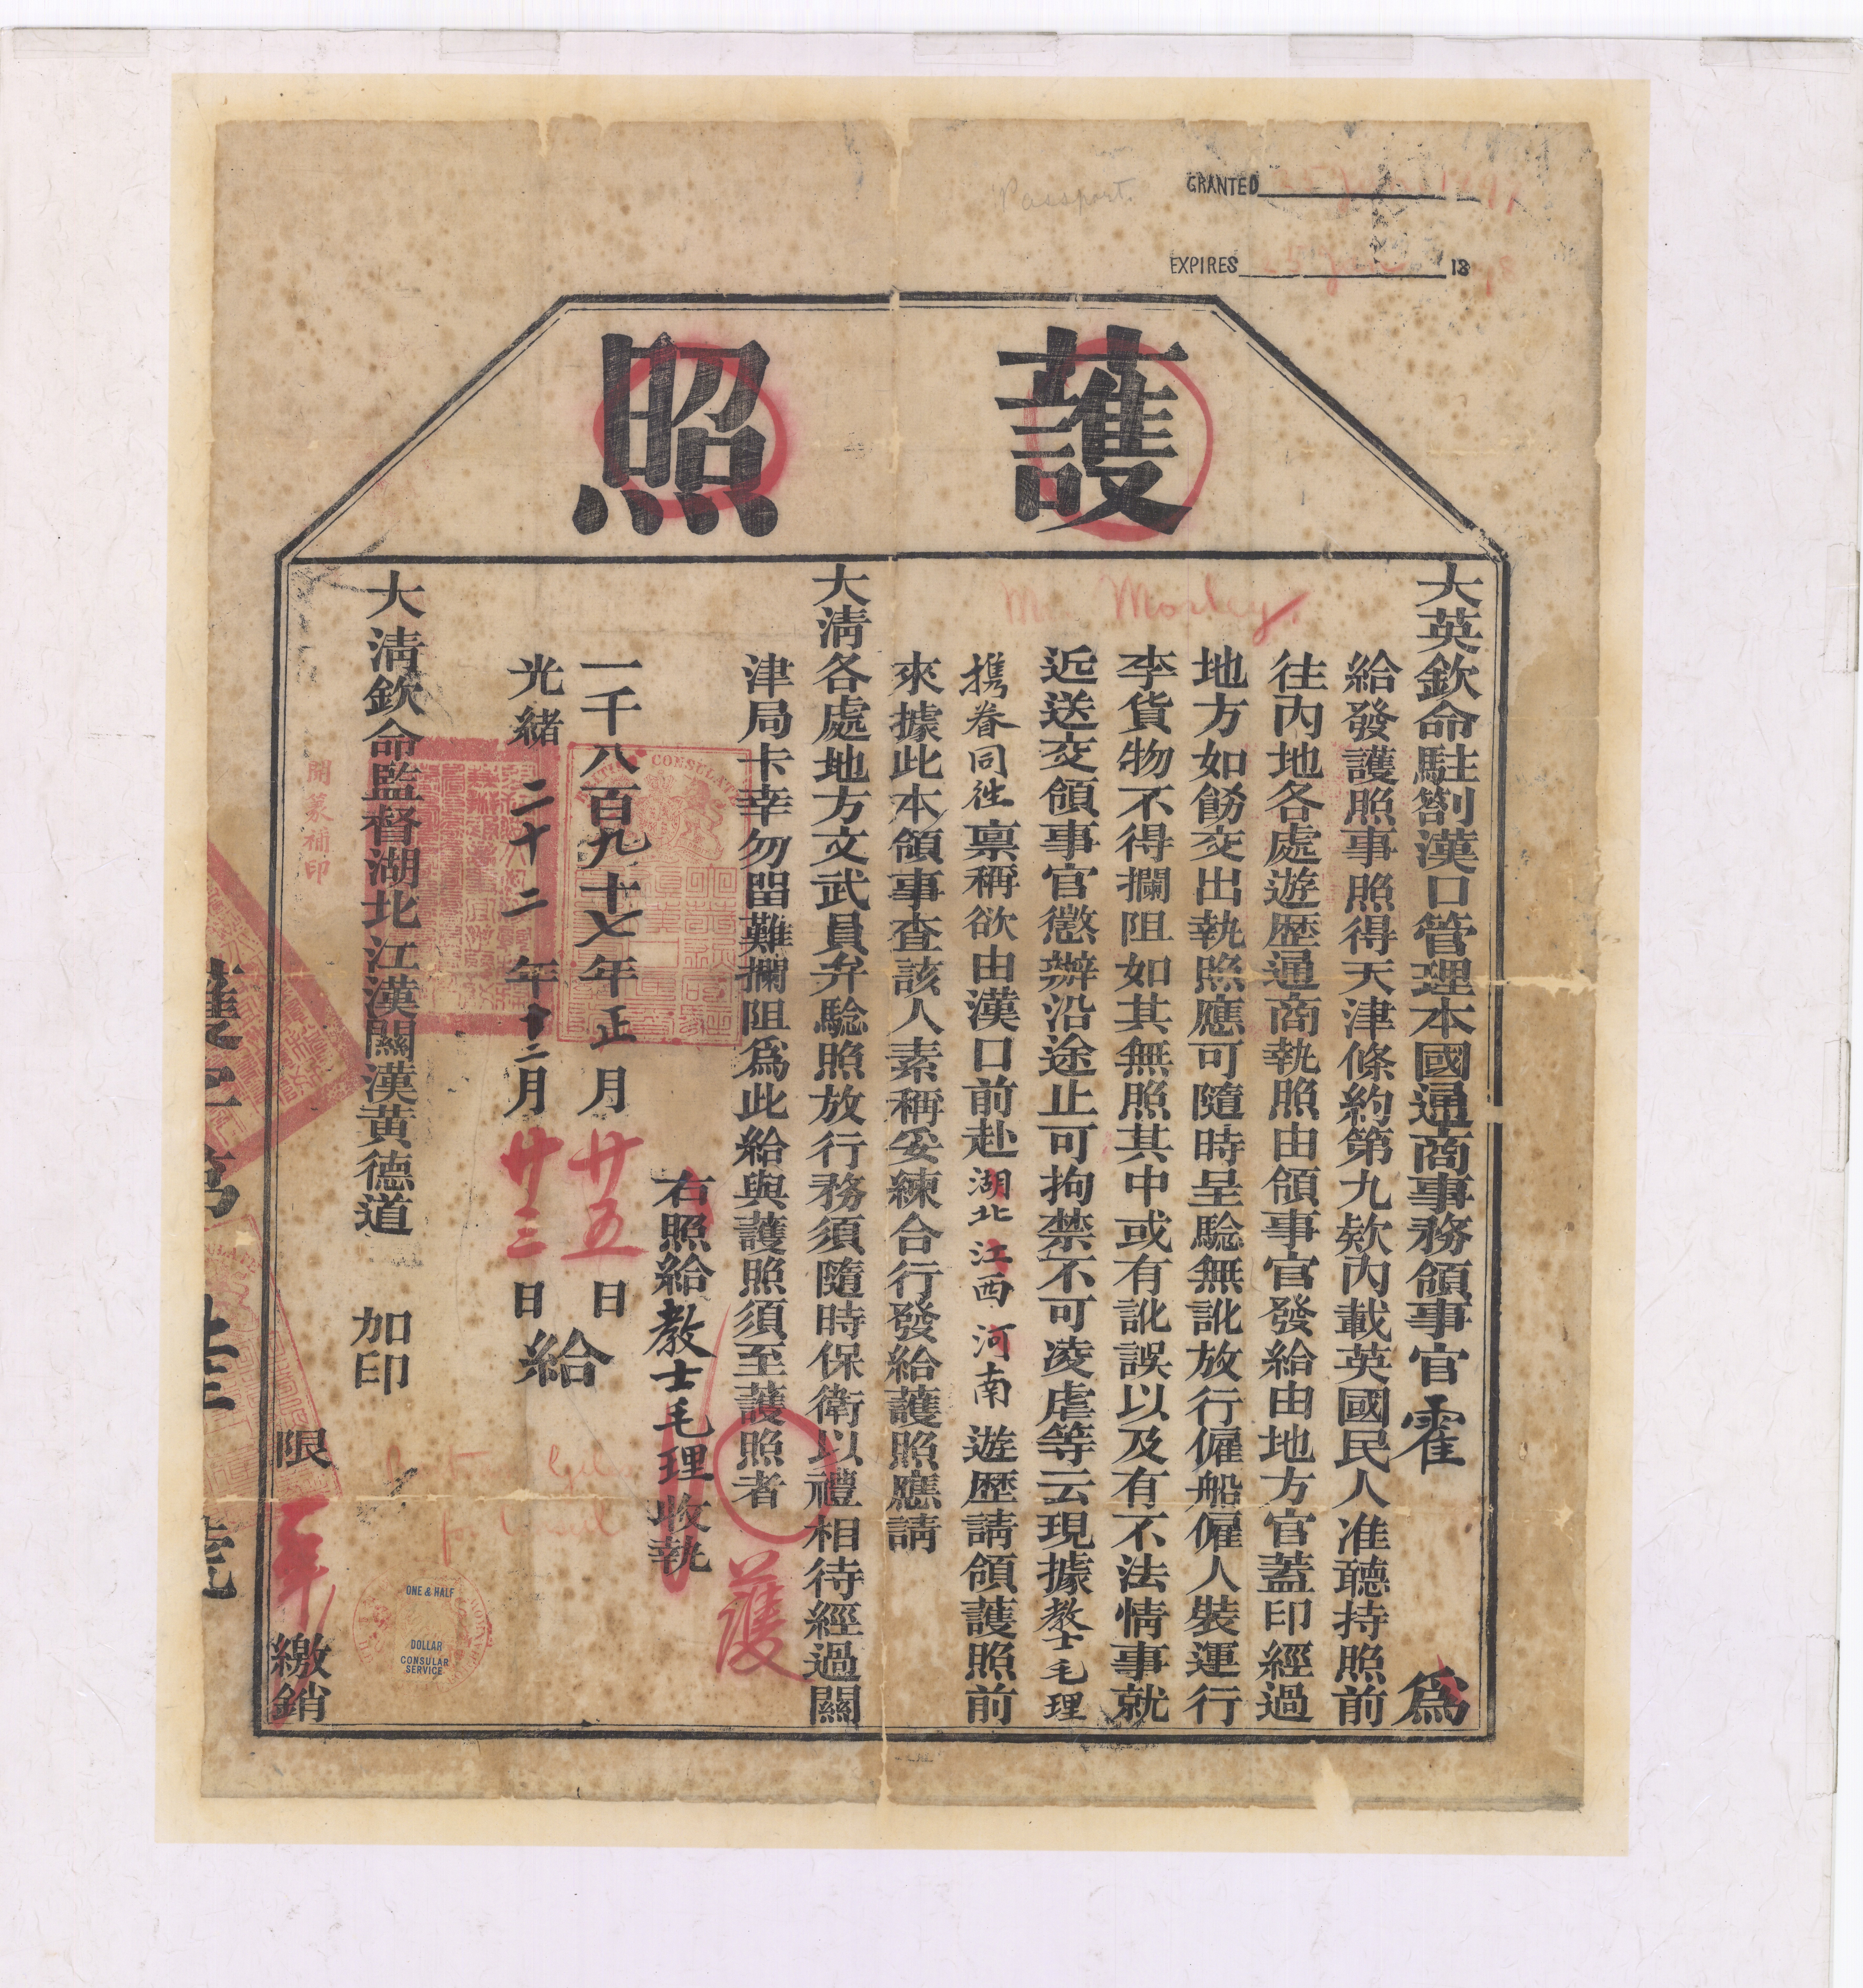 Passport.
GRANTED
EXPIRES 18
護照
Mr Morley,
大英欽命駐劄漢口管理本國通商事務領事官霍 爲
給發護照事照得天津條約第九欵內載英國民人准聽持照前
往內地各處遊歷通商執照由領事官發給由地方官蓋印經過
地方如飭交出執照應可隨時呈騐無訛放行僱船僱人裝運行
李貨物不得攔阻如其無照其中或有訛誤以及有不法情事就
近送交領事官懲辦沿途止可拘禁不可凌虐等云現據教士毛理
携眷同往稟稱欲由漢口前赴湖北江西河南遊歷請領護照前
來據此本領事查該人素稱妥練合行發給護照應請
大清各處地方文武員弁騐照放行務須隨時保衛以禮相待經過關
津局卡幸勿留難攔阻爲此給與護照須至護照者
護
右照給教士毛理收執
一千八百九十七年正月廿五日
光緒二十二年十二月廿三日
給
大清欽命監督湖北江漢關漢黃德道 加印
開篆補印
限 年 繳銷
BRITISH CONSULATE
ONE & HALF
DOLLAR
CONSULAR
SERVICE